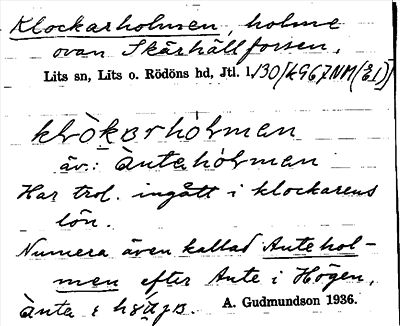 Klockarholmen, holme
ovan Skärhällforsen.
Lits sn, Lits o. Rödöns hd, Jtl. l.
klòkarhòlmen
äv.: àntahòlmen
Har trol. ingått i klockarens
lön.
Numera även kallad Antehol-
men efter Ante i Högen,
ànta i
A. Gudmundson 1936.